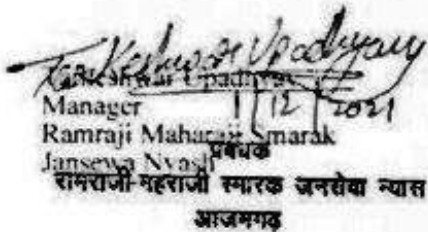 Tarkeshwar Upadhyay
Tarkeshwar Upadhyay
Manager
1/12/2021
Ramraji Maharaji Smarak
Jansewa Nyash
प्रबंधक
रामराजी-महराजी स्मारक जनसेवा न्यास
आजमगढ़